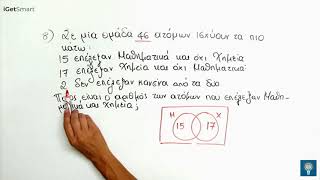 iGetSmart
8) Σε μία ομάδα 46 ατόμων ισχύουν τα πιο
κάτω:
15 επέλεξαν Μαθηματικά και όχι Χημεία
17 επέλεξαν Χημεία και όχι Μαθηματικά
2 δεν επέλεξαν κανένα από τα δύο
είναι ο αριθμός των ατόμων που επέλεξαν Μαθη-
ματικά και Χημεία;
Μ Χ
15 17